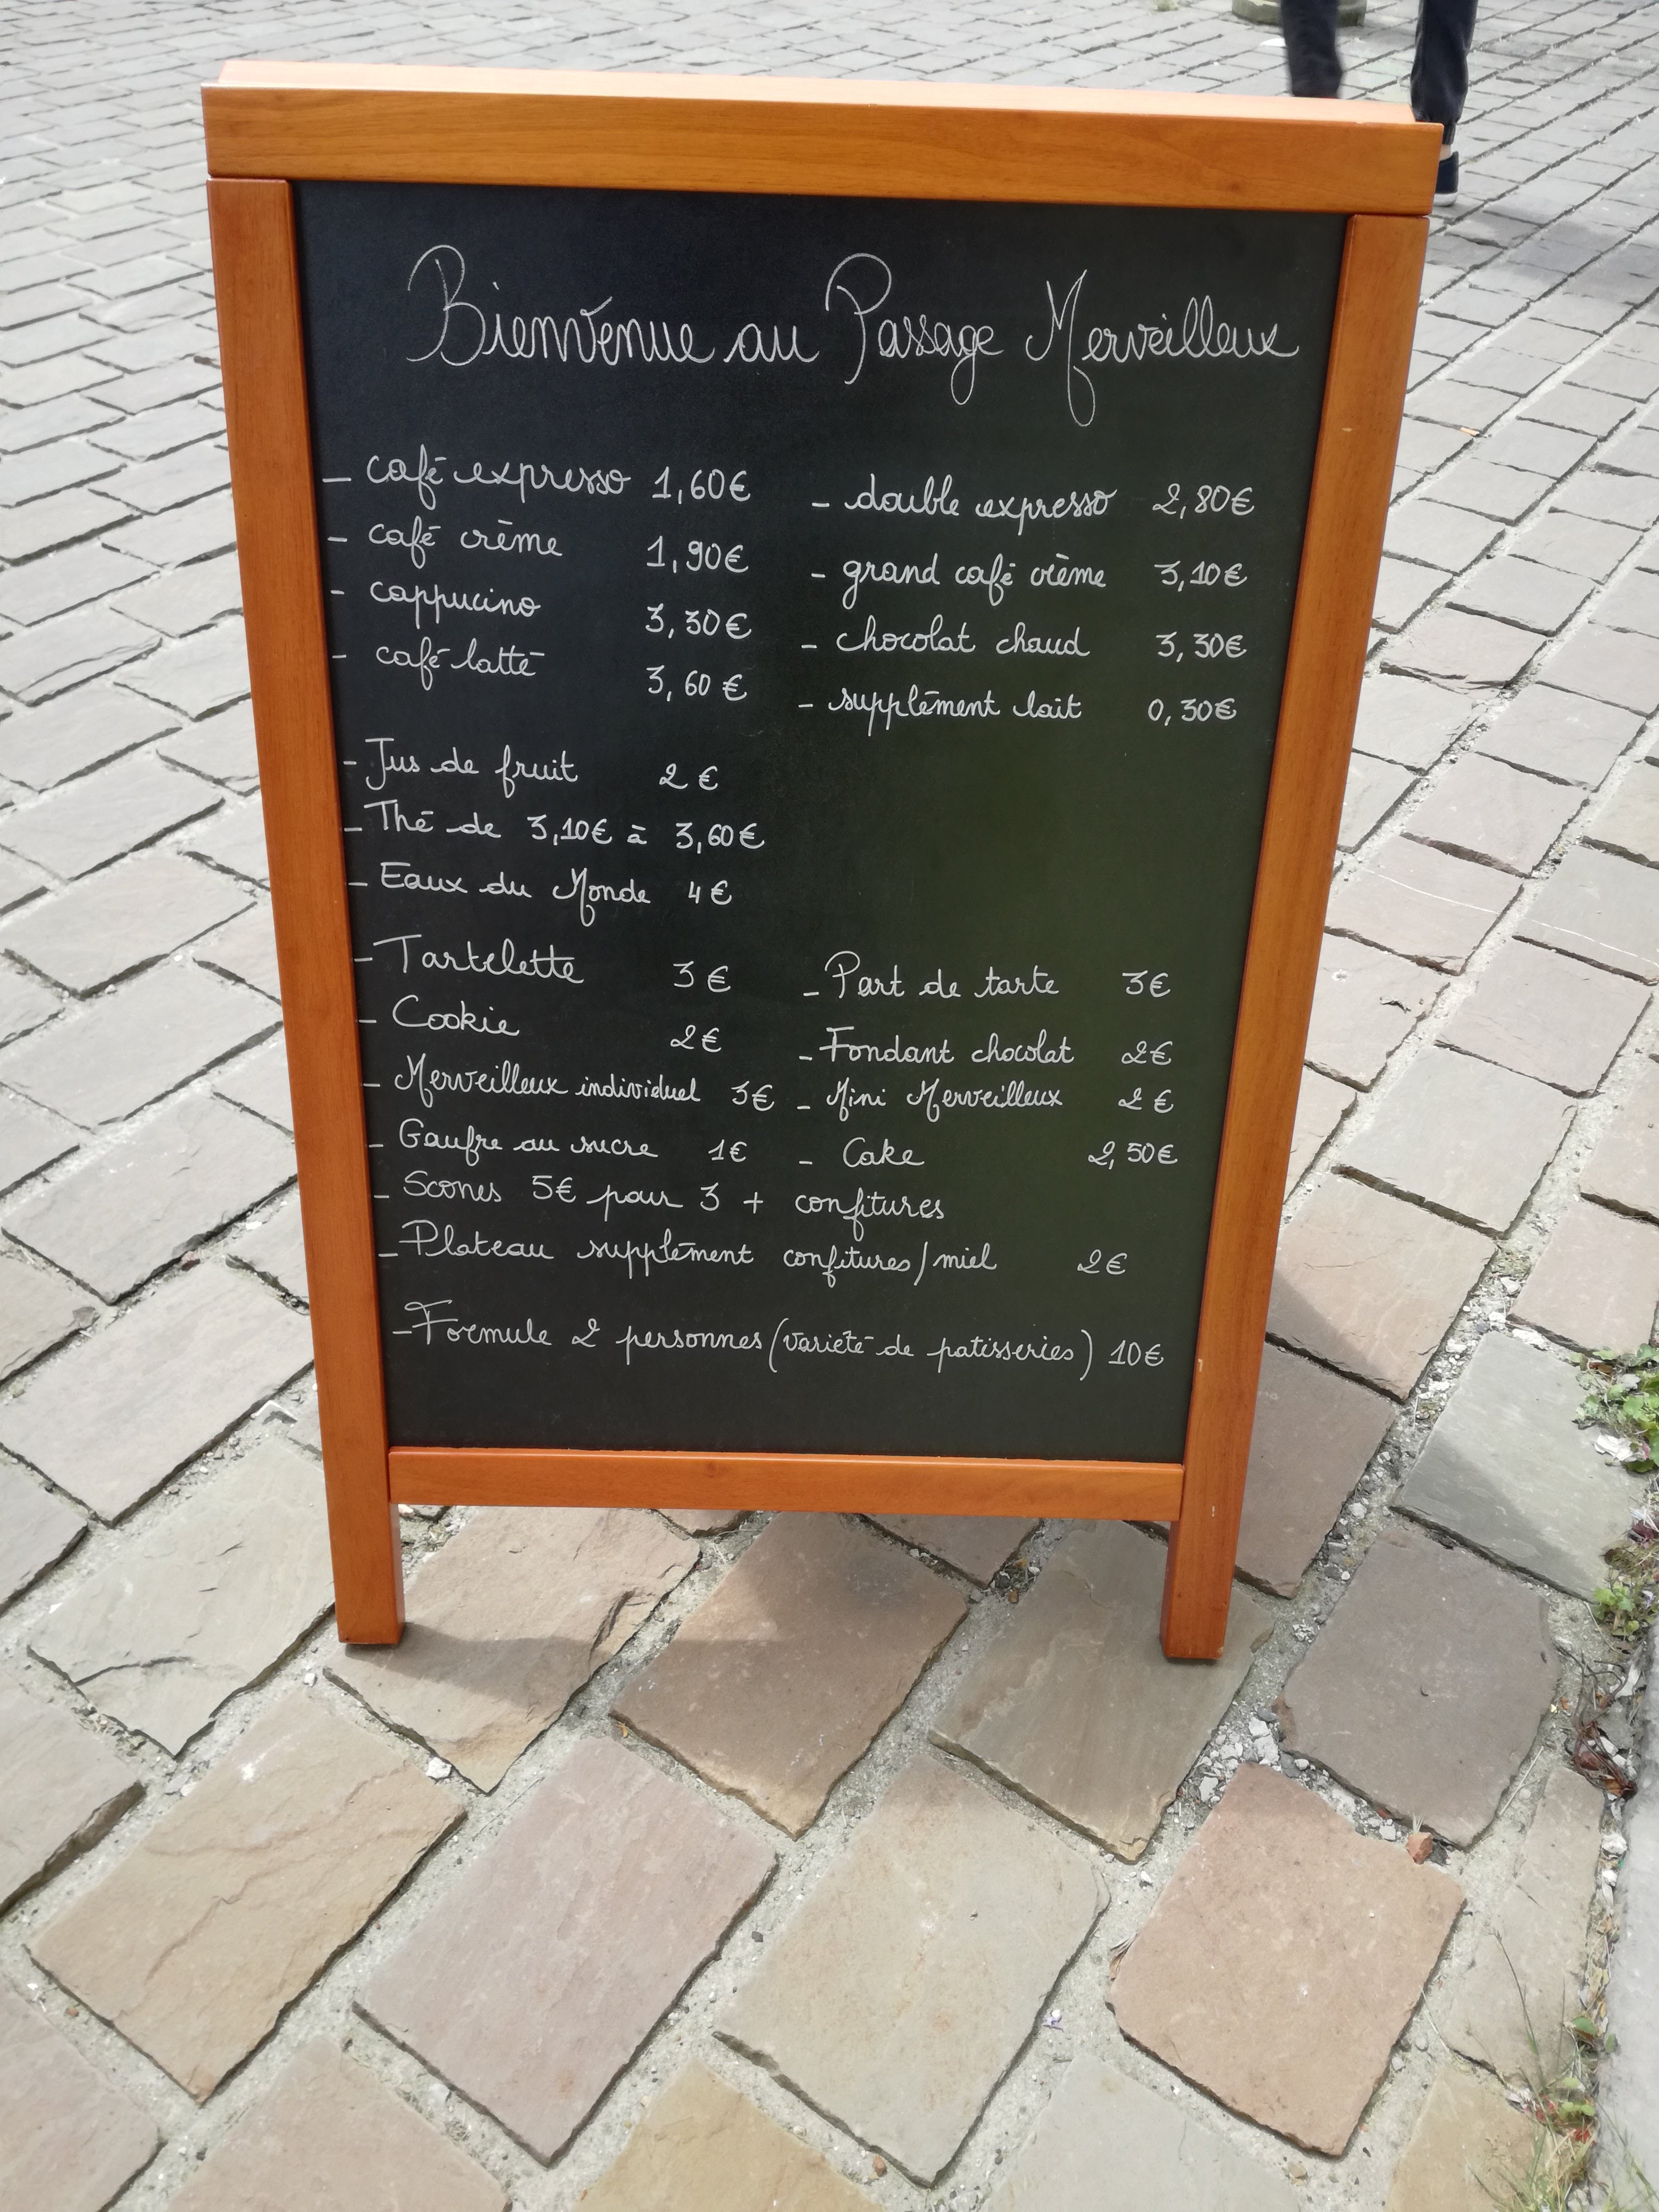 Bienvenue au Passage Merveilleux
- café expresso 1,60€ - double expresso 2,80€
- café crème 1,90€ - grand café crème 3,10€
- cappucino 3,30€ - chocolat chaud 3,30€
- café latté 3,60€ - supplément lait 0,30€
- Jus de fruit 2€
- Thé de 3,10€ à 3,60€
- Eaux du Monde 4€
- Tartelette 3€ - Part de tarte 3€
- Cookie 2€ - Fondant chocolat 2€
- Merveilleux individuel 3€ - Mini Merveilleux 2€
- Gaufre au sucre 1€ - Cake 2,50€
- Scones 5€ pour 3 + confitures
- Plateau supplément confitures/miel 2€
- Formule 2 personnes (variété de patisseries) 10€